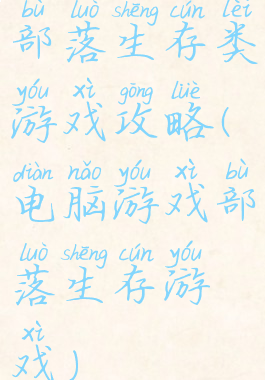 bù luò shēng cún lèi
部落生存类
yóu xì gōng lüè
游戏攻略(
diàn nǎo yóu xì bù
电脑游戏部
luò shēng cún yóu
落生存游
xì
戏)